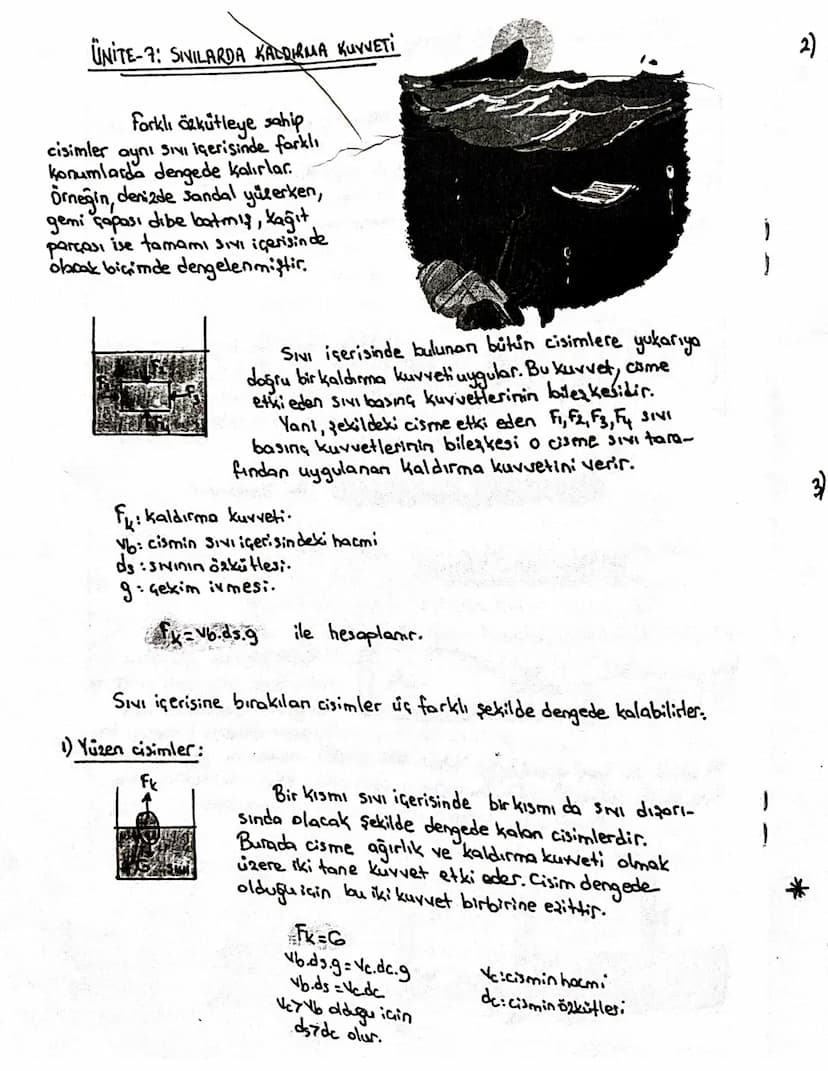 ÜNİTE-7: SIVILARDA KALDIRMA KUVVETİ
2)
Farklı özkütleye sahip
cisimler aynı sıvı içerisinde farklı
konumlarda dengede kalırlar.
Örneğin, denizde sandal yüzerken,
gemi çapası dibe batmış, kağıt
parçası ise tamamı sıvı içerisinde
olacak biçimde dengelenmiştir.
Sıvı içerisinde bulunan bütün cisimlere yukarıya
doğru bir kaldırma kuvveti uygular. Bu kuvvet, cisme
etki eden sıvı basınç kuvvetlerinin bileşkesidir.
Yani, şekildeki cisme etki eden F1, F2, F3, F4 sıvı
basınç kuvvetlerinin bileşkesi o cisme sıvı tara-
fından uygulanan kaldırma kuvvetini verir.
3)
Fk: kaldırma kuvveti.
Vb: cismin sıvı içerisindeki hacmi
ds: sıvının özkütlesi.
g: çekim ivmesi.
Fk=Vb.ds.g ile hesaplanır.
Sıvı içerisine bırakılan cisimler üç farklı şekilde dengede kalabilirler.
1) Yüzen cisimler:
Fk
Bir kısmı sıvı içerisinde bir kısmı da sıvı dışarı-
sında olacak şekilde dengede kalan cisimlerdir.
Burada cisme ağırlık ve kaldırma kuvveti olmak
üzere iki tane kuvvet etki eder. Cisim dengede
olduğu için bu iki kuvvet birbirine eşittir.
*
Fk=G
Vb.ds.g=Vc.dc.g
Vb.ds=Vc.dc
Vc>Vb olduğu için
ds>dc olur.
Vc: cismin hacmi
dc: cismin özkütlesi